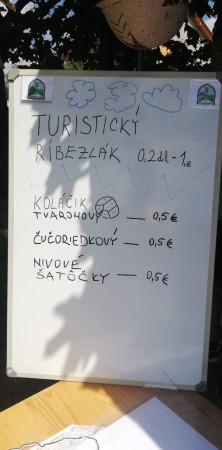 TURISTICKÝ
RÍBEZLÁK 0,2dl - 1,€
KOLÁČIK
TVAROHOVÝ — 0,5€
ČUČORIEDKOVÝ — 0,5€
NIVOVÉ
ŠATÔČKY — 0,5€